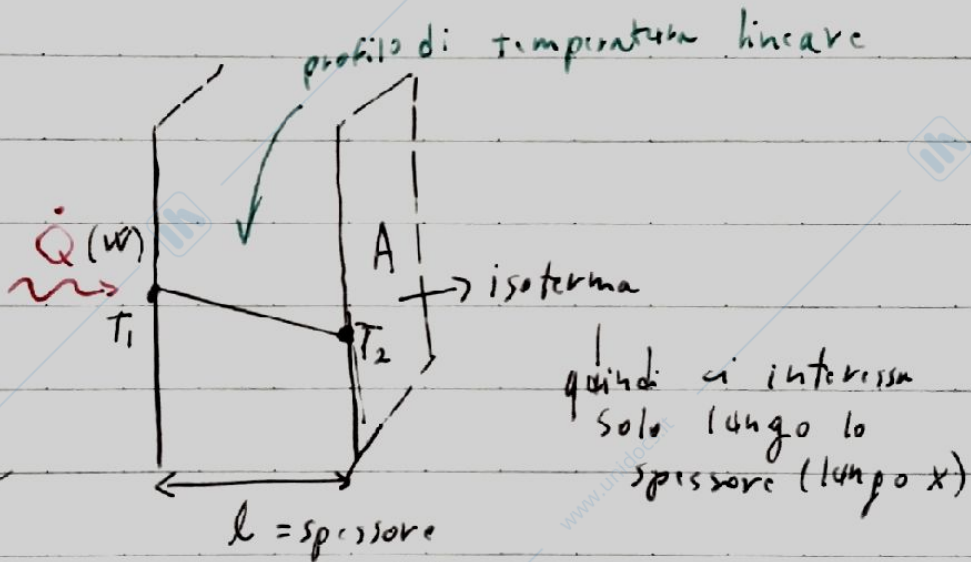 profilo di temperatura lineare
Q̇ (W)
A
→ isoterma
T₁
T₂
quindi ci interessa
solo lungo lo
spessore (lungo x)
l = spessore
www.unidoc.it